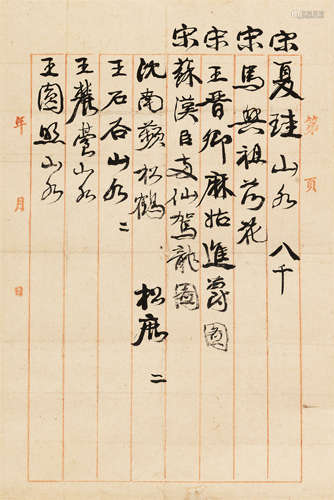 第 頁
宋夏珪山水 八千
宋馬興祖荷花
宋王晉卿麻姑進爵圖
宋蘇漢臣女仙駕龍圖
沈南蘋松鶴 松鹿 二
王石谷山水 二
王麓臺山水
王圓照山水
年 月 日